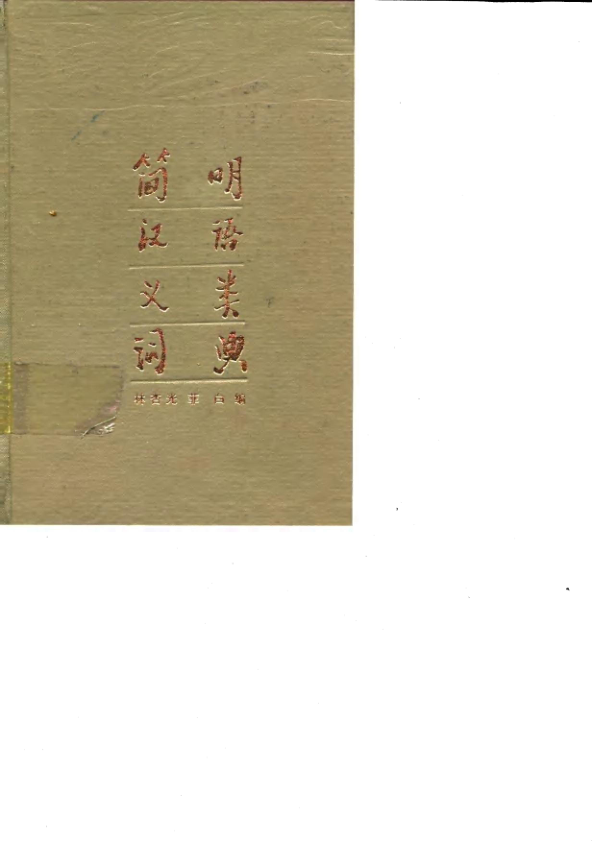 简明
汉语
义类
词典
林杏光 菲白编